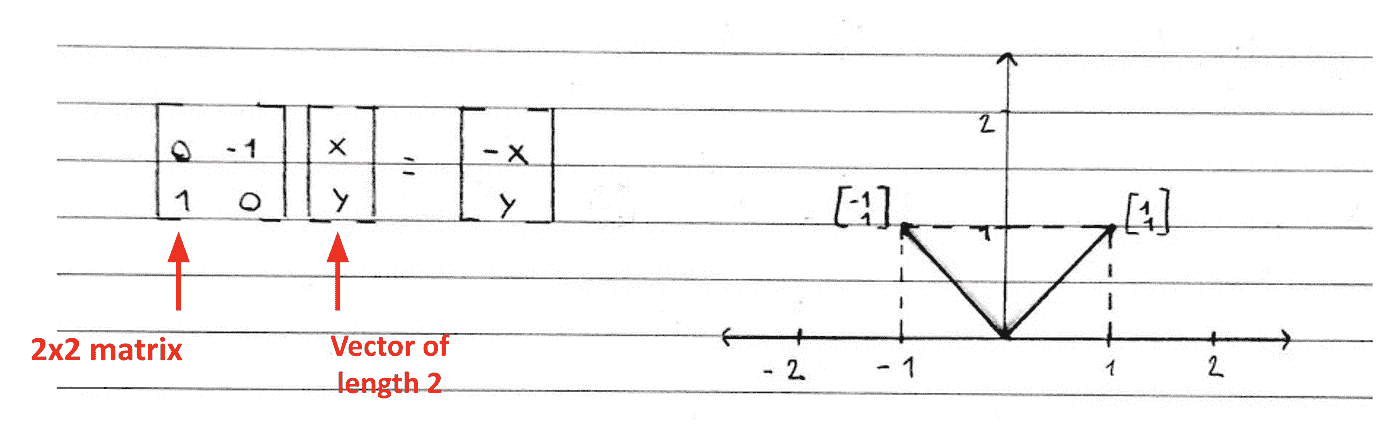 0 -1
1 0
x
y
=
-x
y
2x2 matrix
Vector of
length 2
2
[-1
1]
1
[1
1]
-2 -1 1 2